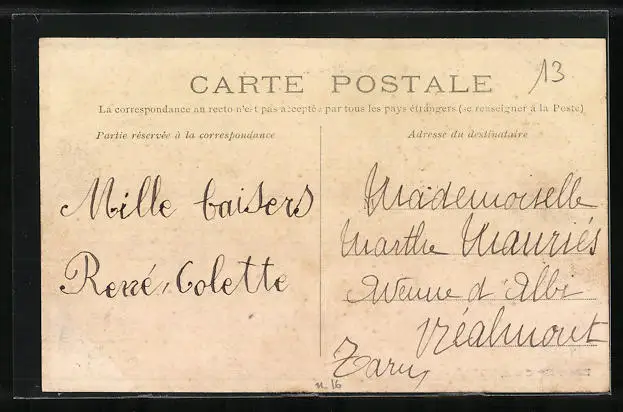 13
CARTE POSTALE
La correspondance au recto n'est pas acceptée par tous les pays étrangers (se renseigner à la Poste)
Partie réservée à la correspondance
Adresse du destinataire
Mille baisers
René, Colette
Mademoiselle
Marthe Mauriés
Avenue d'Albi
Réalmont
Tarn
n 16